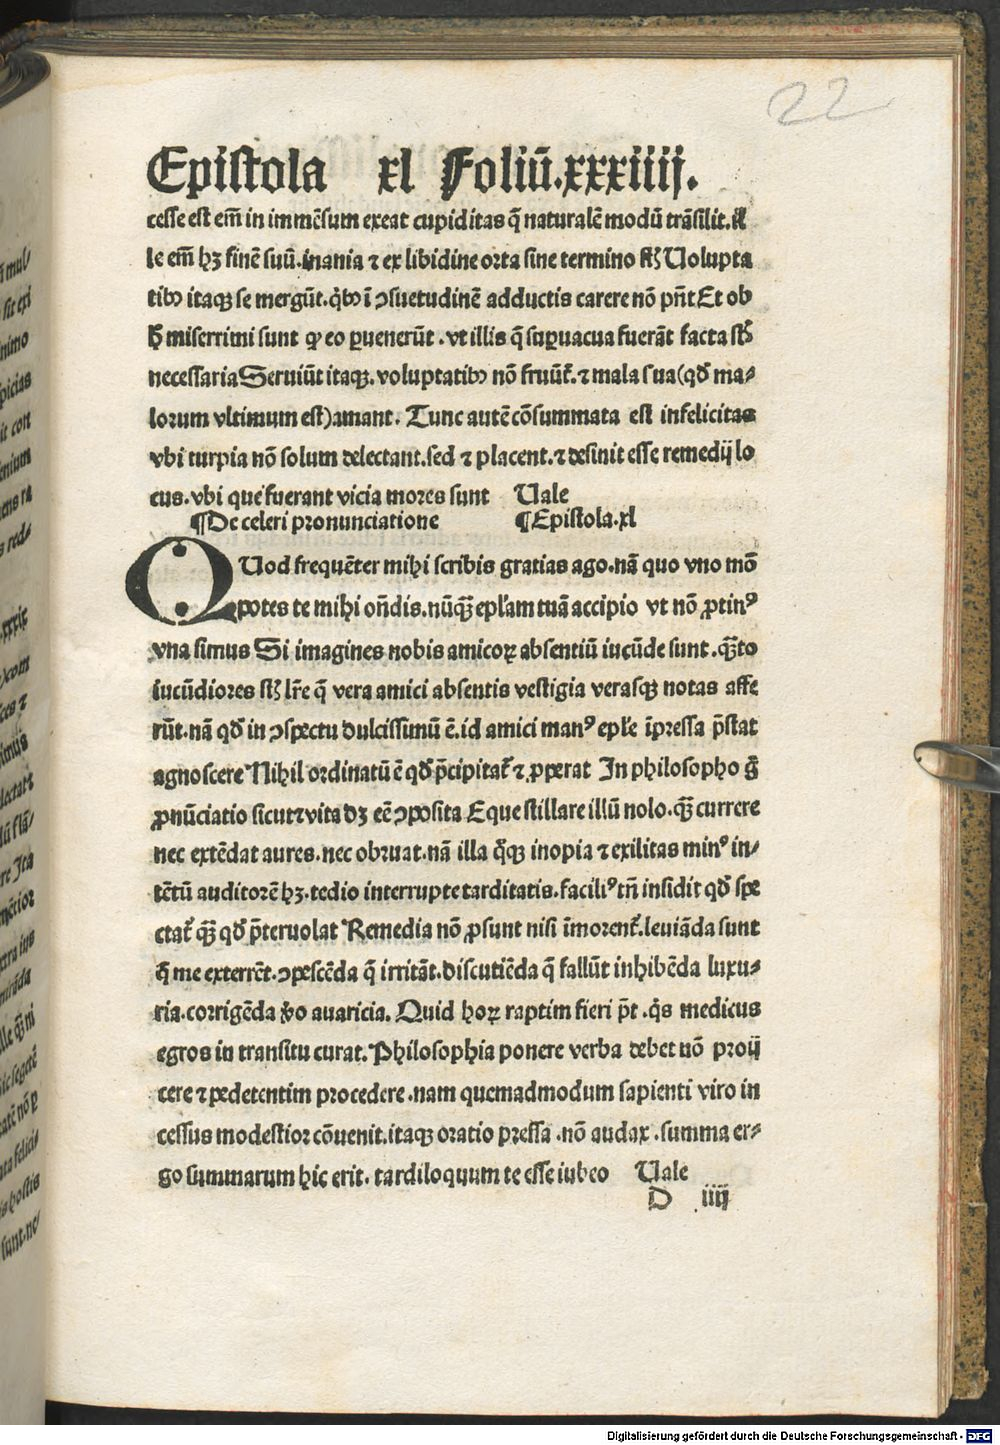 22
Epistola xl Foliū.xxxiiij.
cesse est em̄ in immēsum exeat cupiditas q̄ naturalē modū trāsilit. il
le em̄ hꝫ finē suū. inania ⁊ ex libidine orta sine termino st̄ Volupta
tibꝰ itaqꝫ se mergūt. qͥbꝰ ī ↄsuetudinē adductis carere nō pn̄t Et ob
h̄ miserrimi sunt qꝫ eo ꝑuenerūt. vt illis q̄ suꝑuacua fuerāt facta st̄
necessaria Seruiūt itaqꝫ. voluptatibꝰ nō fruūt̄. ⁊ mala sua (qd̄ ma⸗
lorum vltimum est) amant. Tunc autē cōsummata est infelicitas
vbi turpia nō solum delectant. sed ⁊ placent. ⁊ desinit esse remedij lo
cus. vbi que fuerant vicia mores sunt Vale
¶De celeri pronunciatione ¶Epistola.xl
QVod frequēter mihi scribis gratias ago. nā quo vno mō
potes te mihi on̄dis. nūqꝫ ep̄lam tuā accipio vt nō ꝓtinꝰ
vna simus Si imagines nobis amicoꝝ absentiū iucūde sunt. qͣꝫto
iucūdiores st̄ lr̄e q̄ vera amici absentis vestigia verasqꝫ notas affe
rūt. nā qd̄ in ↄspectu dulcissimū ē. id amici manꝰ ep̄le īpressa p̄stat
agnoscere Nihil ordinatū ē qd̄ p̄cipitat̄ ⁊ ꝓperat In philosopho g̈
ꝓnūciatio sicut ⁊ vita dꝫ eē ↄposita Eque stillare illū nolo. qͣꝫ currere
nec extēdat aures. nec obruat. nā illa qͦqꝫ inopia ⁊ exilitas minꝰ in⸗
tētū auditorē hꝫ. tedio interrupte tarditatis. faciliꝰ tn̄ insidit qd̄ spe
ctat̄ qͣꝫ qd̄ p̄teruolat Remedia nō ꝓsunt nisi īmorent̄. leuiāda sunt
q̄ me exterrēt. ↄpescēda q̄ irritāt. discutiēda q̄ fallūt inhibēda luxu⸗
ria. corrigēda ꝟo auaricia. Quid hoꝝ raptim fieri p̄t. qͥs medicus
egros in transitu curat. Philosophia ponere verba debet nō proij
cere ⁊ pedetentim procedere. nam quemadmodum sapienti viro in
cessus modestior cōuenit. itaqꝫ oratio pressa. nō audax. summa er⸗
go summarum hic erit. tardiloquum te esse iubeo Vale
D iiij
Digitalisierung gefördert durch die Deutsche Forschungsgemeinschaft - DFG